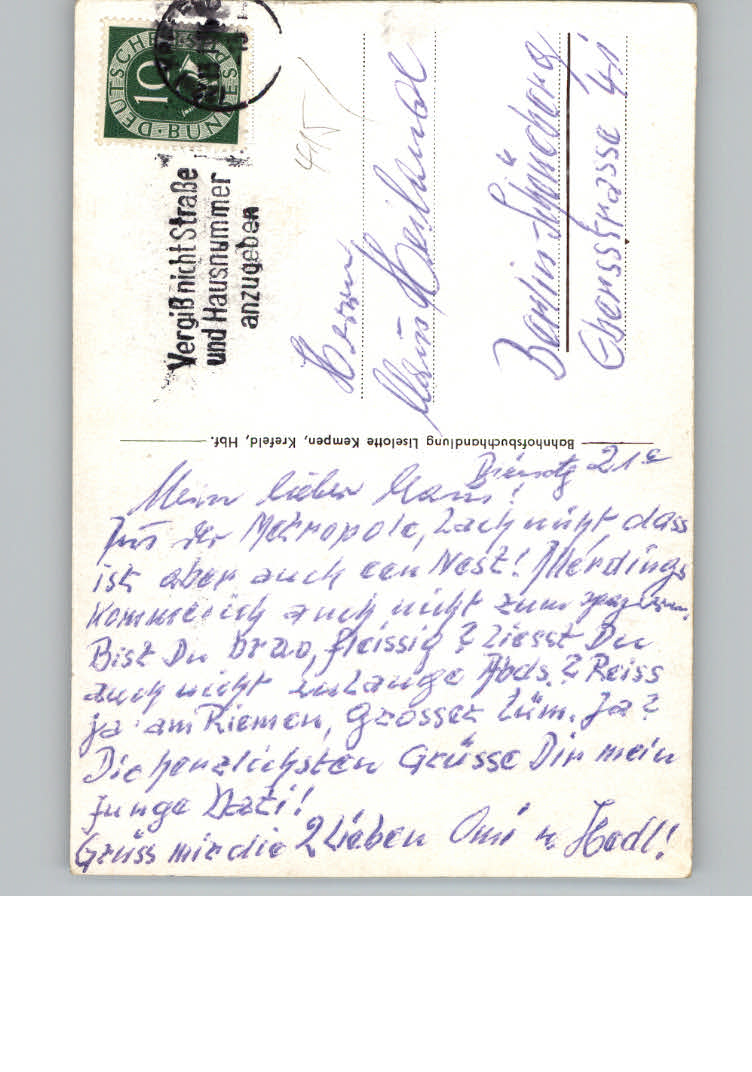 DEUTSCHE BUNDESPOST
10
Vergiß nicht Straße
und Hausnummer
anzugeben
Herrn
Hans
Berlin-Schöneberg
Eberssstrasse 41
Bahnhofsbuchhandlung Liselotte Kempen, Krefeld, Hbf.
21
Mein lieber Hans!
Aus der Metropole, Lach nicht, dass
ist aber auch een Nest! Allerdings
komme ich auch nicht zum
Bist Du brav, fleissig? Liesst Du
auch nicht zu lange Abds.? Reiss
ja am Riemen, grosser Lüm. Ja?
Die herzlichsten Grüsse Dir mein
Junge
Grüss mir die 2 Lieben Omi u. Hedl!